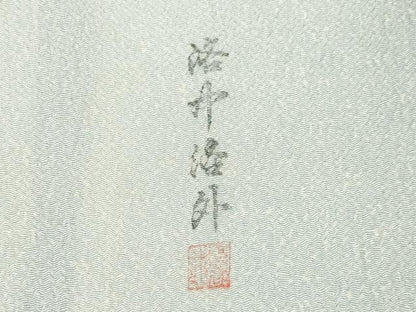 洛中洛外